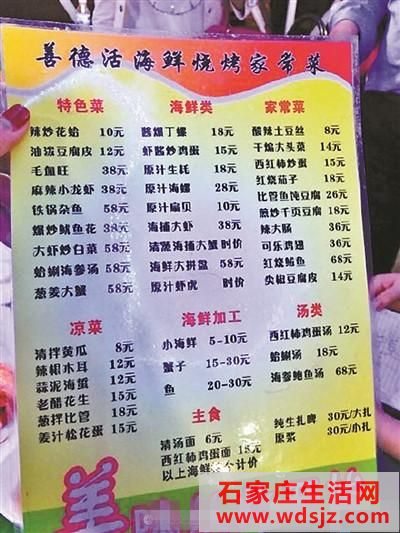 善德活海鲜烧烤家常菜
特色菜
辣炒花蛤 10元
油泼豆腐皮 12元
毛血旺 38元
麻辣小龙虾 38元
铁锅杂鱼 58元
爆炒鱿鱼花 38元
大虾炒白菜 58元
蛤蜊海参汤 58元
葱姜大蟹 58元
海鲜类
酱爆丁螺 18元
虾酱炒鸡蛋 15元
原汁生蚝 18元
原汁海螺 28元
原汁扇贝 10元
海捕大虾 38元
清蒸海捕大蟹 时价
海鲜大拼盘 58元
原汁虾虎 时价
家常菜
酸辣土豆丝 8元
干煸大头菜 14元
西红柿炒蛋 14元
红烧茄子 18元
比管鱼炖豆腐 26元
煎炒千页豆腐 18元
辣大肠 36元
可乐鸡翅 36元
红烧鲅鱼 68元
尖椒豆腐皮 14元
凉菜
清拌黄瓜 8元
辣根木耳 12元
蒜泥海蜇 12元
老醋花生 15元
葱拌比管 18元
姜汁松花蛋 15元
海鲜加工
小海鲜 5-10元
蟹子 15-30元
鱼 20-30元
汤类
西红柿鸡蛋汤 12元
蛤蜊汤 18元
海参鲍鱼汤 68元
主食
清汤面 6元
西红柿鸡蛋面 15元
以上海鲜 个计价
纯生扎啤 30元/大扎
原浆 30元/小扎
美
石家庄生活网
www.wdsjz.com